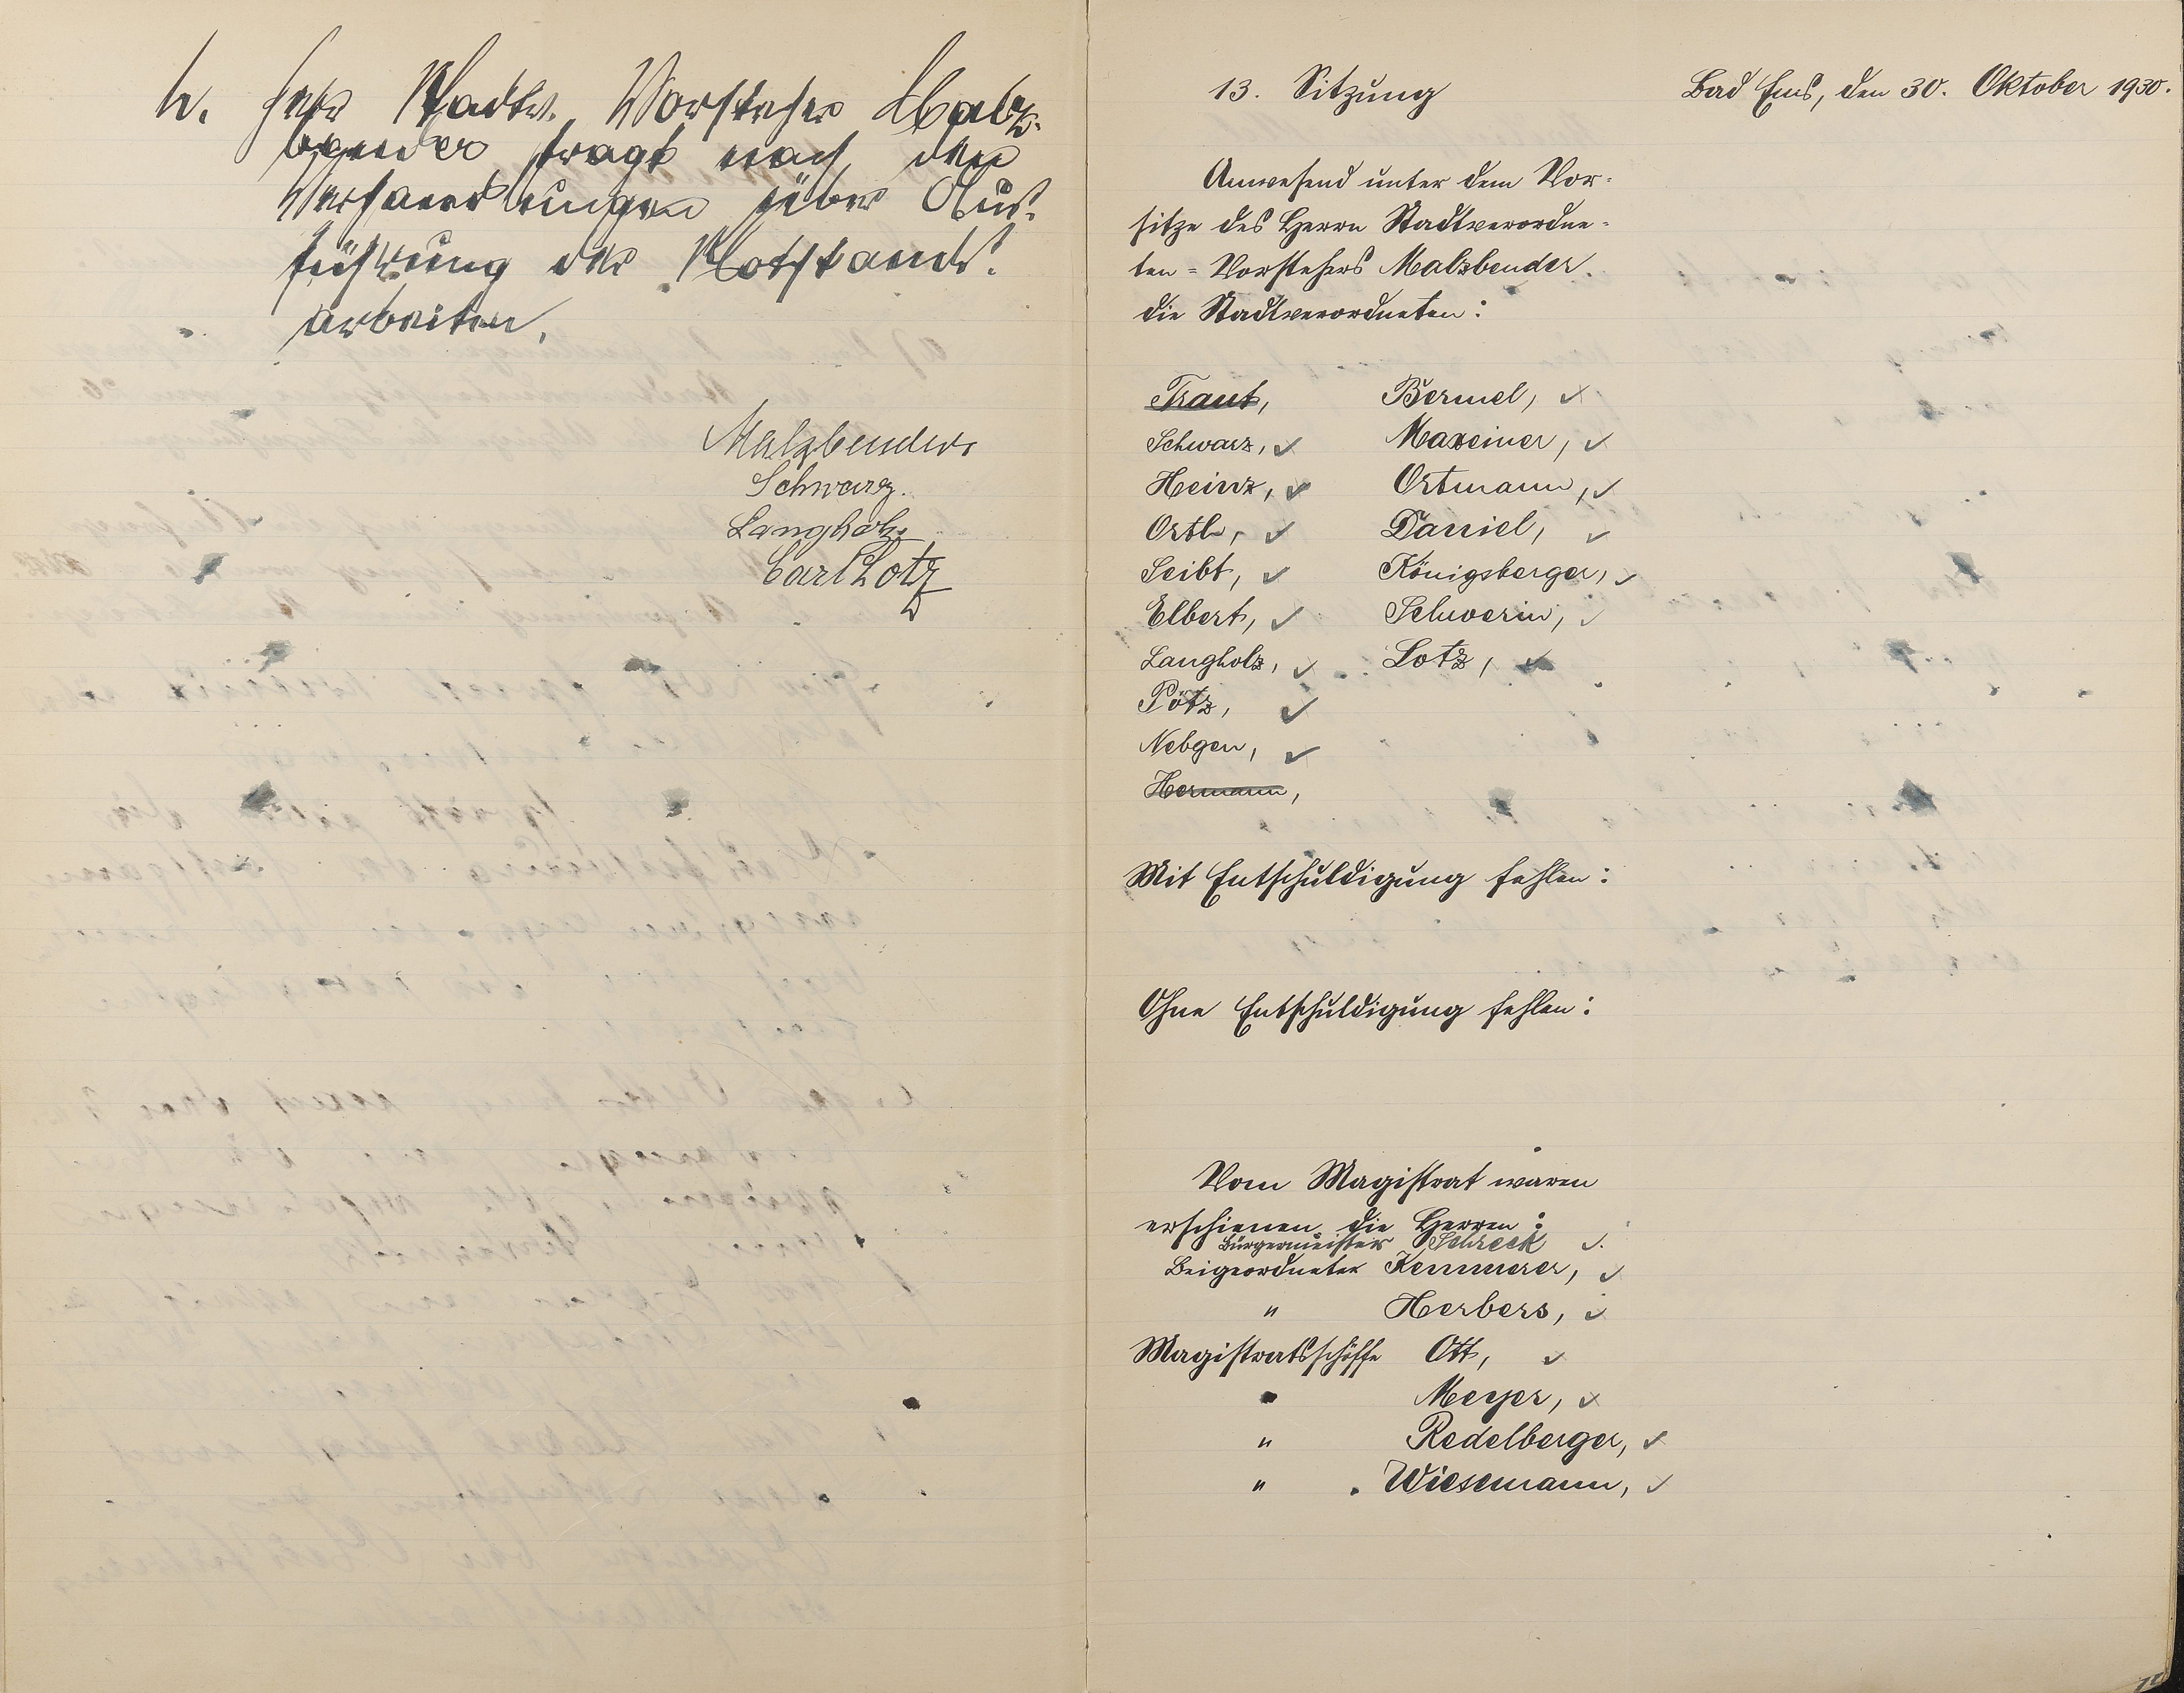 h. Herr Stadtv. Vorsteher Malz-
bender fragt nach den
Verhandlungen über Aus-
führung der Notstands-
arbeiten.
Malzbender
Schwarz.
Langholz
Carl Lotz
13. Sitzung
Bad Ems, den 30. Oktober 1930.
Anwesend unter dem Vor-
sitze des Herrn Stadtverordne-
ten-Vorstehers Malzbender.
die Stadtverordneten:
Traut, Bermel, ✓
Schwarz, ✓ Maxeiner, ✓
Heinz, ✓ Ortmann, ✓
Orth, ✓ Daniel, ✓
Seibt, ✓ Königsberger, ✓
Elbert, ✓ Schwerin, ✓
Langholz, ✓ Lotz, ✓
Pötz, ✓
Nebgen, ✓
Hermann,
Mit Entschuldigung fehlen:
Ohne Entschuldigung fehlen:
Vom Magistrat waren
erschienen die Herren:
Bürgermeister Schreck ✓.
Beigeordneter Kemmerer, ✓
" Herbers, ✓
Magistratsschöffe Ott, ✓
" Meyer, ✓
" Redelberger, ✓
" Wiesemann, ✓